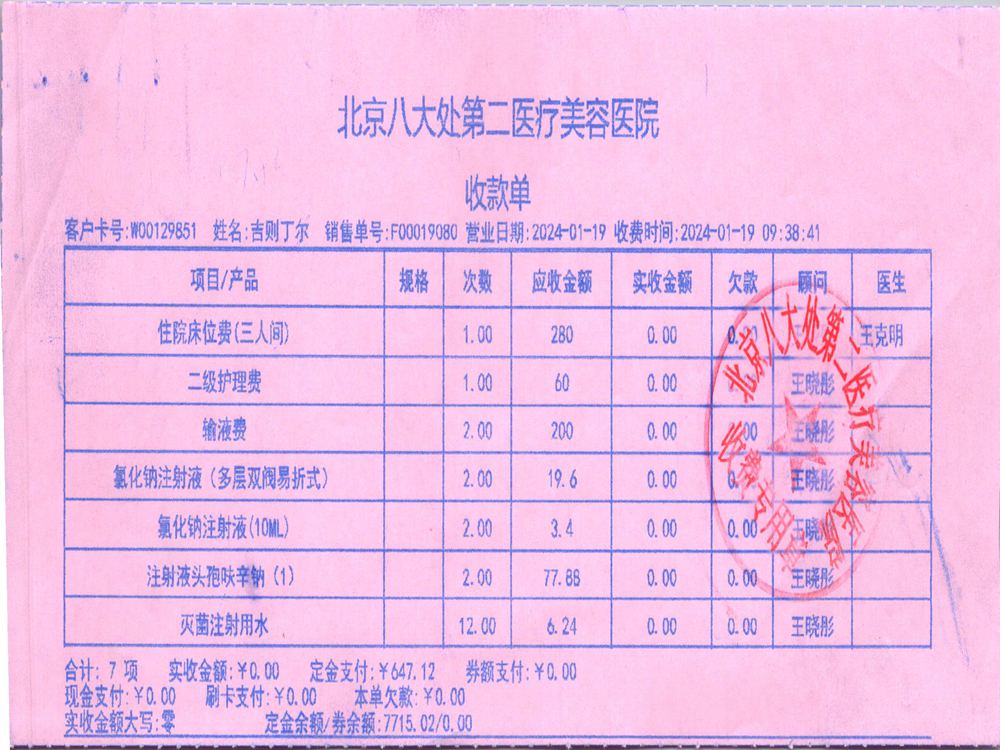 北京八大处第二医疗美容医院
收款单
客户卡号:W00129851 姓名:吉则丁尔 销售单号:F00019080 营业日期:2024-01-19 收费时间:2024-01-19 09:38:41
项目/产品 规格 次数 应收金额 实收金额 欠款 顾问 医生
住院床位费(三人间) 1.00 280 0.00 0.00 王克明
二级护理费 1.00 60 0.00 王晓彤
输液费 2.00 200 0.00 0.00 王晓彤
氯化钠注射液（多层双阀易折式） 2.00 19.6 0.00 0.00 王晓彤
氯化钠注射液(10ML) 2.00 3.4 0.00 0.00 王晓彤
注射液头孢呋辛钠（1） 2.00 77.88 0.00 0.00 王晓彤
灭菌注射用水 12.00 6.24 0.00 0.00 王晓彤
合计: 7 项 实收金额:￥0.00 定金支付:￥647.12 券额支付:￥0.00
现金支付:￥0.00 刷卡支付:￥0.00 本单欠款:￥0.00
实收金额大写:零 定金余额/券余额:7715.02/0.00
北京八大处第二医疗美容医院
收费专用章